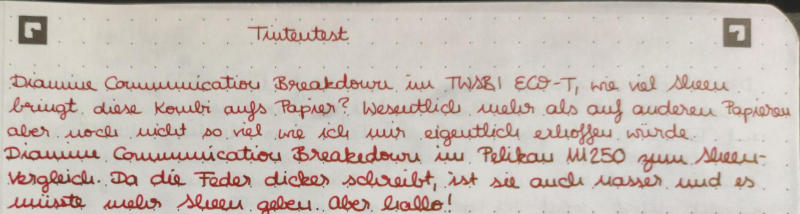 Tintentest
Diamine Communication Breakdown im TWSBI ECO-T, wie viel Sheen
bringt diese Kombi aufs Papier? Wesentlich mehr als auf anderen Papieren
aber noch nicht so viel wie ich mir eigentlich erhoffen würde.
Diamine Communication Breakedown im Pelikan M250 zum Sheen-
vergleich. Da die Feder dicker schreibt, ist sie auch nasser und es
müsste mehr Sheen geben. Aber hallo!